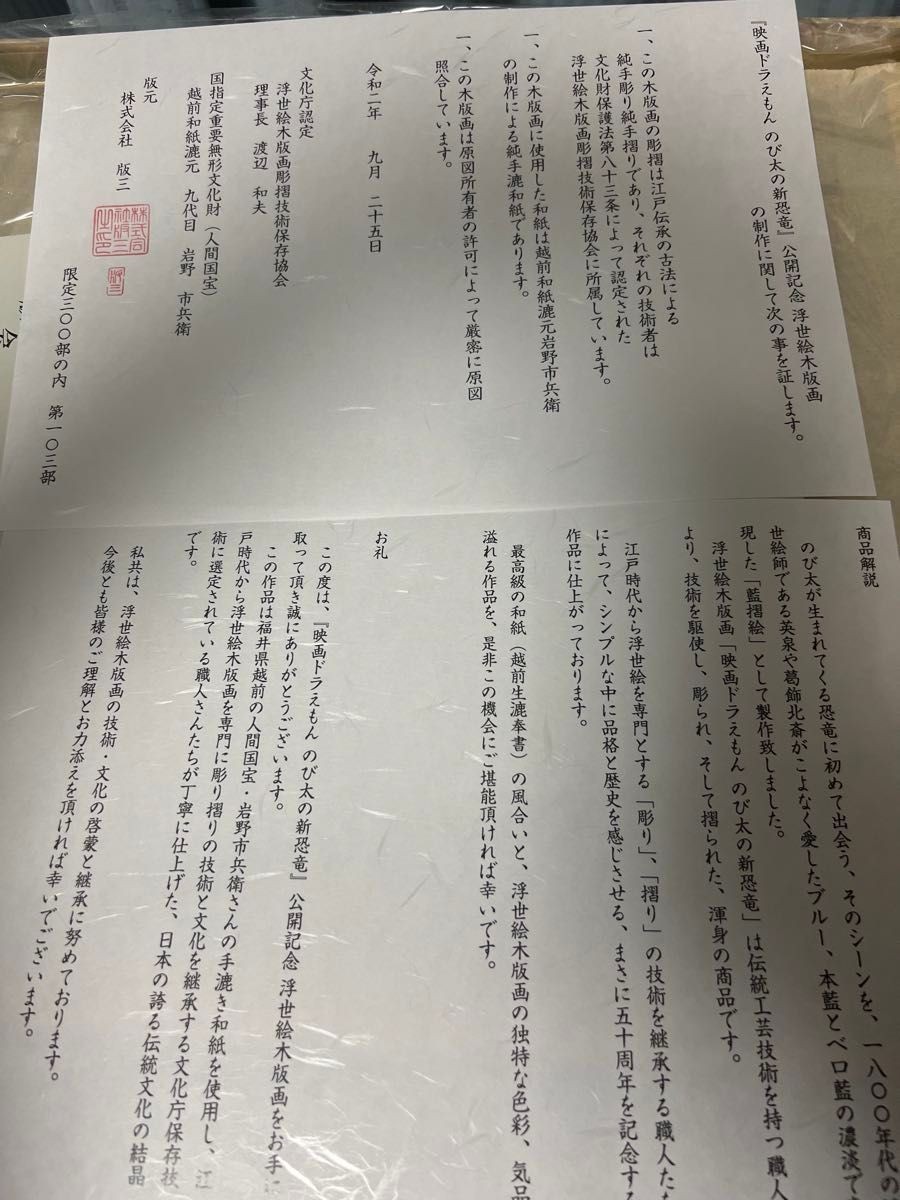 『映画ドラえもん のび太の新恐竜』公開記念 浮世絵木版画
の制作に関して次の事を証します。
一、この木版画の彫摺は江戸伝承の古法による
純手彫り純手摺りであり、それぞれの技術者は
文化財保護法第八十三条によって認定された
浮世絵木版画彫摺技術保存協会に所属しています。
一、この木版画に使用した和紙は越前和紙漉元岩野市兵衛
の制作による純手漉和紙であります。
一、この木版画は原図所有者の許可によって厳密に原図
照合しています。
令和二年 九月 二十五日
文化庁認定
浮世絵木版画彫摺技術保存協会
理事長 渡辺 和夫
国指定重要無形文化財（人間国宝）
越前和紙漉元 九代目 岩野 市兵衛
版元
株式会社 版三
株式会社版三之印
版三
限定三〇〇部の内 第一〇三部
商品解説
のび太が生まれてくる恐竜に初めて出会う、そのシーンを、一八〇〇年代の
世絵師である英泉や葛飾北斎がこよなく愛したブルー、本藍とベロ藍の濃淡で
現した「藍摺絵」として製作致しました。
浮世絵木版画「映画ドラえもん のび太の新恐竜」は伝統工芸技術を持つ職人
より、技術を駆使し、彫られ、そして摺られた、渾身の商品です。
江戸時代から浮世絵を専門とする「彫り」、「摺り」の技術を継承する職人たち
によって、シンプルな中に品格と歴史を感じさせる、まさに五十周年を記念する
作品に仕上がっております。
最高級の和紙（越前生漉奉書）の風合いと、浮世絵木版画の独特な色彩、気品
溢れる作品を、是非この機会にご堪能頂ければ幸いです。
お礼
この度は、『映画ドラえもん のび太の新恐竜』公開記念 浮世絵木版画をお手に
取って頂き誠にありがとうございます。
この作品は福井県越前の人間国宝・岩野市兵衛さんの手漉き和紙を使用し、江
戸時代から浮世絵木版画を専門に彫り摺りの技術と文化を継承する文化庁保存技
術に選定されている職人さんたちが丁寧に仕上げた、日本の誇る伝統文化の結晶
です。
私共は、浮世絵木版画の技術・文化の啓蒙と継承に努めております。
今後とも皆様のご理解とお力添えを頂ければ幸いでございます。